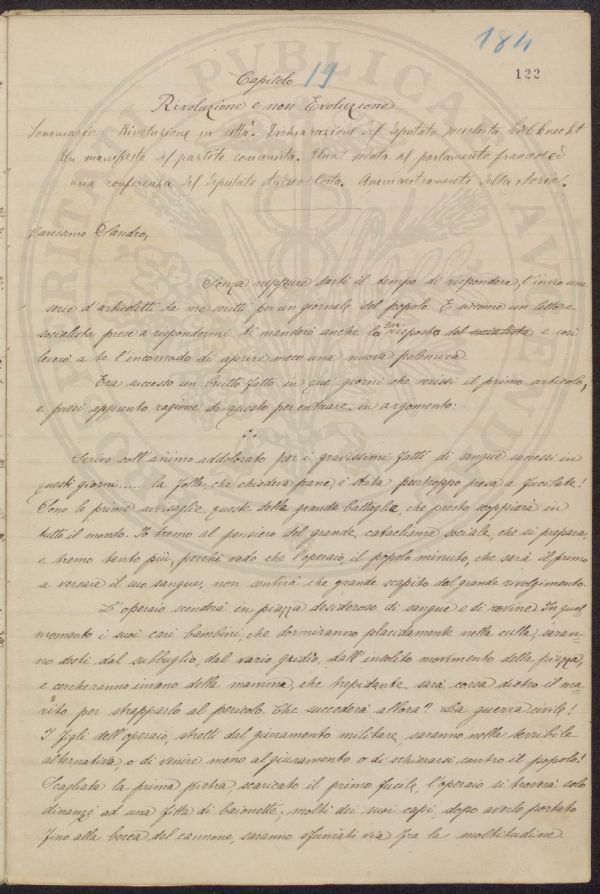 184
122
Capitolo 19
Rivoluzione e non Evoluzione
Sommario. Rivoluzione in città! Dichiarazioni del deputato socialista Liebknecht
Un manifesto del partito comunista. Una seduta al parlamento francese ed
una conferenza del deputato Andrea Costa. Ammaestramenti della storia.
Carissimo Sandro,
Senza neppure darti il tempo di rispondere, t'invio una
serie d'articoletti da me scritti per un giornale del popolo. E siccome un lettore
socialista prese a rispondermi ti manderò anche la sua risposta del socialista e così
leverò a te l'incomodo di aprire meco una nuova polemica.
Era successo un brutto fatto in quei giorni che scrissi il primo articolo,
e presi appunto ragione da questo per entrare in argomento:
Scrivo coll'animo addolorato per i gravissimi fatti di sangue successi in
questi giorni.... la folla, che chiedeva pane, è stata purtroppo presa a fucilate!
Sono le prime avvisaglie queste della grande battaglia, che presto scoppierà in
tutto il mondo. Io tremo al pensiero del grande cataclisma sociale, che si prepara,
e tremo tanto più, perchè vedo che l'operaio, il popolo minuto, che sarà il primo
a versare il suo sangue, non sentirà che grande scapito dal grande rivolgimento.
L'operaio scenderà in piazza desideroso di sangue e di rovine. In quel
momento i suoi cari bambini, che dormiranno placidamente nella culla, saran-
no desti dal subbuglio, dal vario gridìo, dall'insolito movimento della piazza,
e cercheranno invano della mamma, che trepidante, sarà corsa dietro il ma-
rito per strapparlo al pericolo. Che succederà allora? La guerra civile!
I figli dell'operaio, stretti dal giuramento militare, saranno nella terribile
alternativa, o di venire meno al giuramento o di schierarsi contro il popolo!
Scagliata la prima pietra, scaricato il primo fucile, l'operaio si troverà solo
dinanzi ad una fitta di baionette, molti dei suoi capi, dopo averlo portato
fino alla bocca del cannone, saranno sfumati via fra la moltitudine